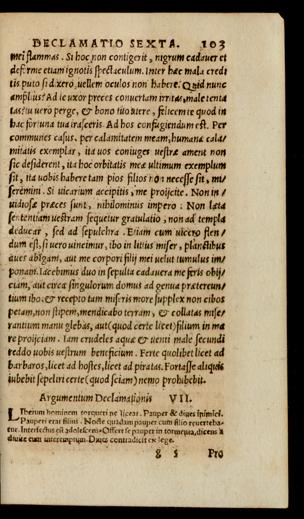 DECLAMATIO SEXTA. 103
mei flammas. Si hoc non contigerit, nigrum cadauer et
deforme etiam ignotis spectaculum. Inter hæc mala credi
tis puto si dixero, uellem oculos non habere. Quid nunc
amplius? Ad te uxor preces conuertam irritas, male tenta
tas? tu uero perge, & bono tuo uiuere, felicem te quod in
hac fortuna tua irasceris. Ad hos confugiendum est. Per
communes casus, per calamitatem meam, humanæ cala/
mitatis exemplar, ita uos coniuges uestræ ament non
sic desiderent, ita hoc orbitatis meæ ultimum exemplum
sit, ita uobis habere tam pios filios non necesse sit, mi/
seremini. Si uicarium accipitis, me proijcite. Non in/
uidiosæ preces sunt, nihilominus impero. Non lata
sententiam uestram sequetur gratulatio, non ad templa
deducar, sed ad sepulchra. Etiam cum uicero flen/
dum est, si uero uincimur, ibo in litius miser, planctibus
aues abigam, aut me corpori filij mei uelut tumulus im/
ponam. Iacebimus duo in sepulta cadauera me feris obij/
ciam, aut circa singulorum domus ad genua prætereun/
tium ibo: & recepto tam miseris more supplex non cibos
petam, non stipem, mendicabo terram, & collatas mise/
rantium manu glebas, aut (quod certe licet) filium in ma
re proijciam. Iam crudeles aquæ & uenti male secundi
reddo uobis uestrum beneficium. Ferte quolibet licet ad
barbaros, licet ad hostes, licet ad piratas. Fortasse aliquis
iubebit sepeliri certe (quod sciam) nemo prohibebit.
Argumentum Declamationis VII.
LIberum hominem torqueri ne liceat. Pauper & diues inimici.
Pauperi erat filius. Nocte quadam pauper cum filio reuerteba-
tur. Interfectus est adolescens. Offert se pauper in tormenta, dicens à
diuite eum interemptum. Diues contradicit ex lege.
g 5 Pro